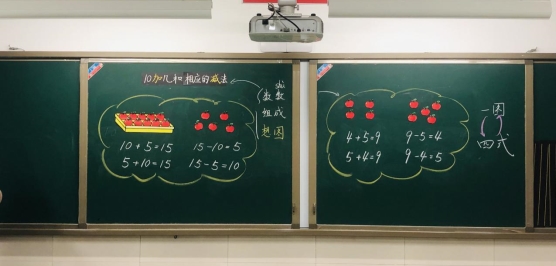 10加几和相应的减法
数数
组成
想图
10+5=15
15-10=5
5+10=15
15-5=10
4+5=9
9-5=4
5+4=9
9-4=5
一图
四式